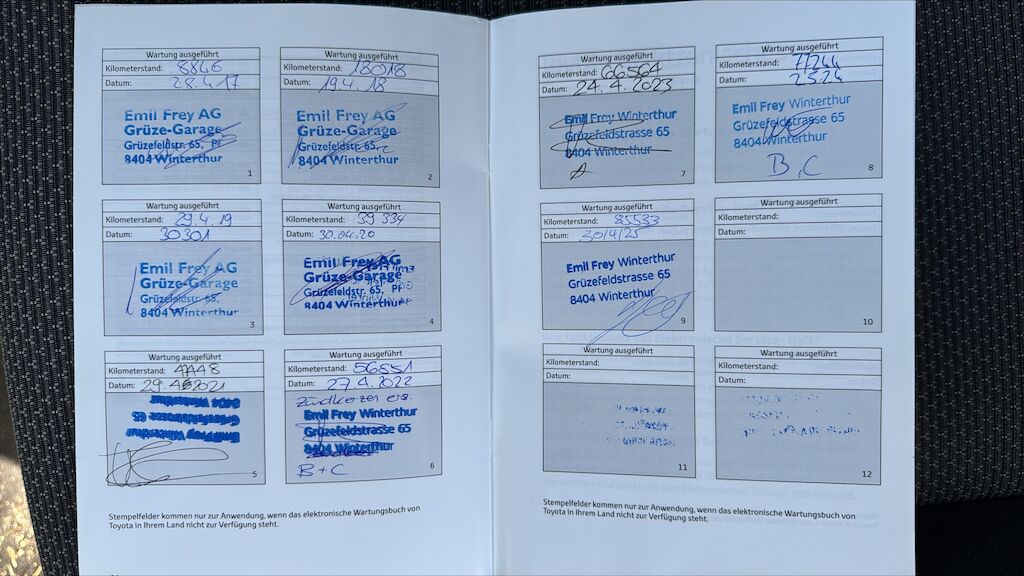 Wartung ausgeführt
Kilometerstand: 8846
Datum: 28.4.17
Emil Frey AG
Grüze-Garage
Grüzefeldstr. 65, Pf
8404 Winterthur
1
Wartung ausgeführt
Kilometerstand: 18018
Datum: 19.4.18
Emil Frey AG
Grüze-Garage
Grüzefeldstr. 65, Pf
8404 Winterthur
2
Wartung ausgeführt
Kilometerstand: 29.4.19
Datum: 30301
Emil Frey AG
Grüze-Garage
Grüzefeldstr. 65,
8404 Winterthur
3
Wartung ausgeführt
Kilometerstand: 39 334
Datum: 30.04.20
Emil Frey AG
Grüze-Garage
Grüzefeldstr. 65, Pf
8404 Winterthur
4
Wartung ausgeführt
Kilometerstand:
Datum: 29.4.2021
8404 Winterthur
Grüzefeldstrasse 65
Emil Frey Winterthur
5
Wartung ausgeführt
Kilometerstand: 56551
Datum: 27.4.2022
Zündkerzen ers.
Emil Frey Winterthur
Grüzefeldstrasse 65
8404 Winterthur
B + C
6
Stempelfelder kommen nur zur Anwendung, wenn das elektronische Wartungsbuch von
Toyota in Ihrem Land nicht zur Verfügung steht.
Wartung ausgeführt
Kilometerstand: 66564
Datum: 24.4.2023
Emil Frey Winterthur
Grüzefeldstrasse 65
8404 Winterthur
A
7
Wartung ausgeführt
Kilometerstand: 77244
Datum: 2.5.24
Emil Frey Winterthur
Grüzefeldstrasse 65
8404 Winterthur
B, C
8
Wartung ausgeführt
Kilometerstand: 85533
Datum: 30/4/25
Emil Frey Winterthur
Grüzefeldstrasse 65
8404 Winterthur
9
Wartung ausgeführt
Kilometerstand:
Datum:
10
Wartung ausgeführt
Kilometerstand:
Datum:
11
Wartung ausgeführt
Kilometerstand:
Datum:
12
Stempelfelder kommen nur zur Anwendung, wenn das elektronische Wartungsbuch von
Toyota in Ihrem Land nicht zur Verfügung steht.